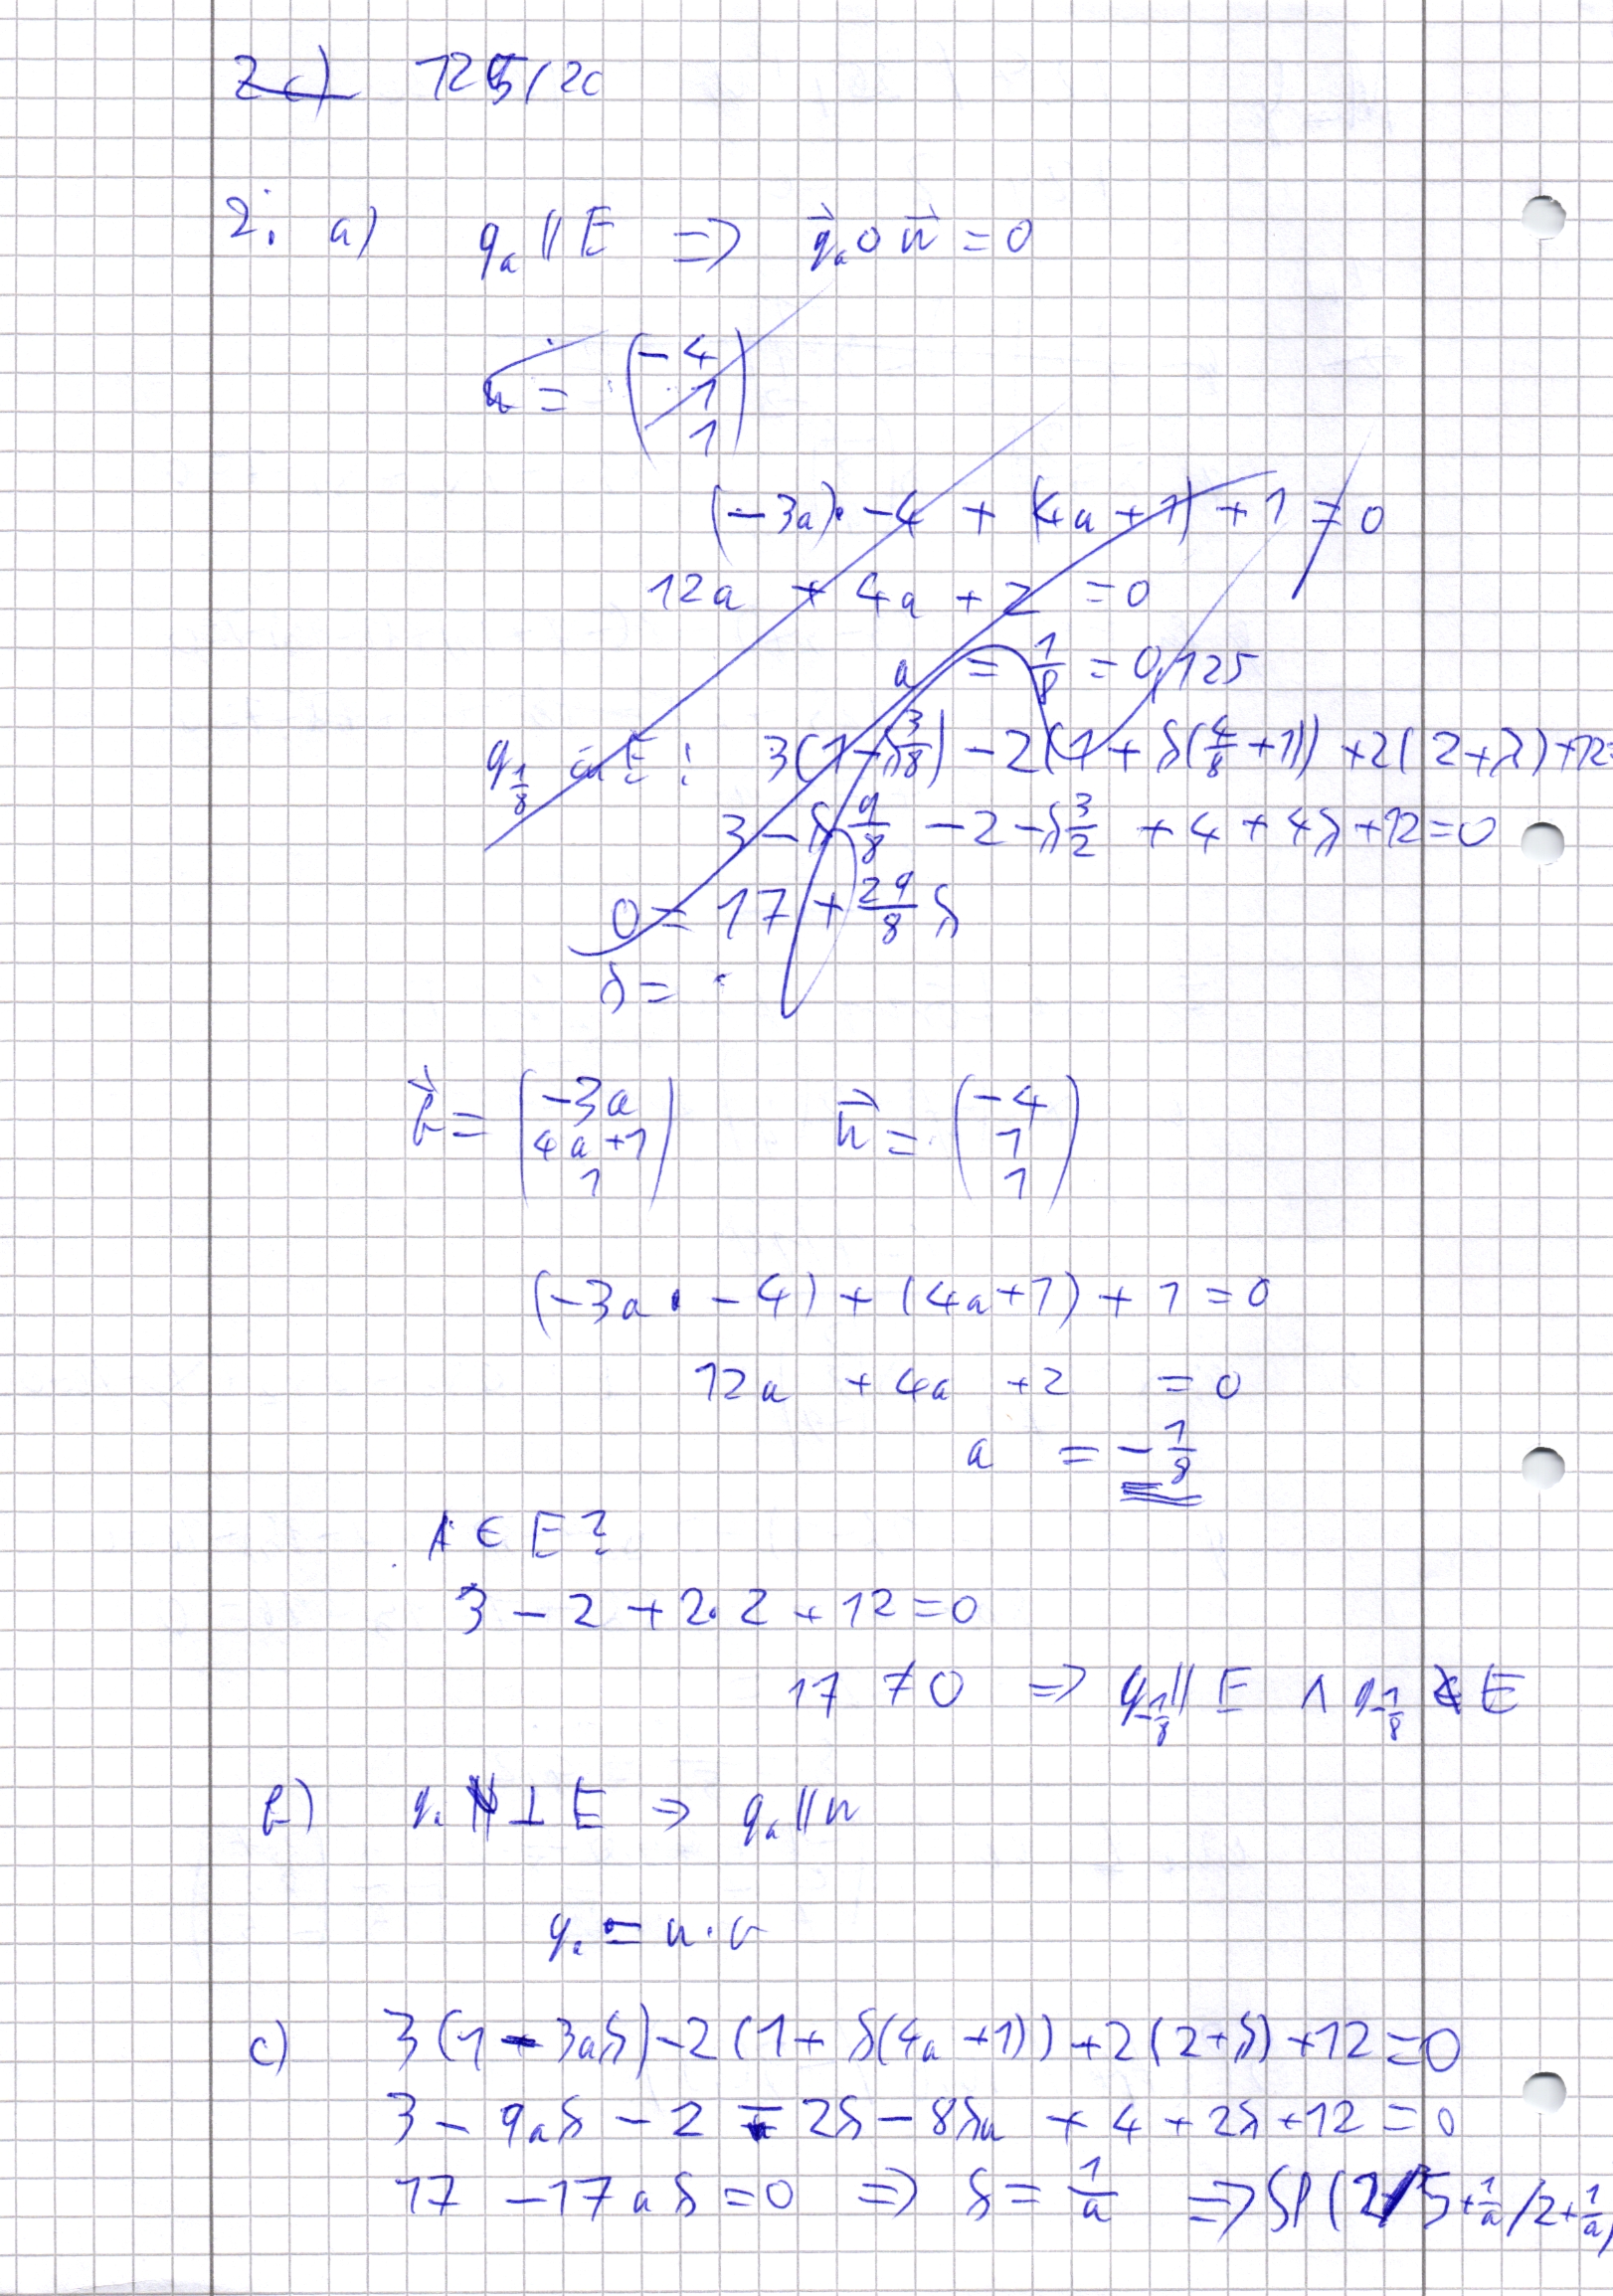 2c) 125/2c
2. a) g_a || E => g⃗_a ∘ n⃗ = 0
n = (-4 1 1)
(-3a)·-4 + (4a+1) + 1 = 0
12a + 4a + 2 = 0
a = 1/8 = 0,125
g_1/8 in E: 3(1-λ3/8) - 2(1+λ(4/8+1)) + 2(2+λ) + 12=
3 - λ9/8 - 2 - λ3/2 + 4 + 4λ + 12 = 0
0 = 17 + 29/8 λ
λ =
b⃗ = (-3a 4a+1 1) n⃗ = (-4 1 1)
(-3a · -4) + (4a+1) + 1 = 0
12a + 4a + 2 = 0
a = -1/8
A ∈ E?
3 - 2 + 2·2 + 12 = 0
17 ≠ 0 => g_-1/8 || E ∧ g_-1/8 ∉ E
b) g_a ⊥ E => g_a || n
g_a = n · v
c) 3(1-3aλ) - 2(1+λ(4a+1)) + 2(2+λ) + 12 = 0
3 - 9aλ - 2 - 2λ - 8λa + 4 + 2λ + 12 = 0
17 - 17aλ = 0 => λ = 1/a => SP(2/5+1/a/2+1/a)